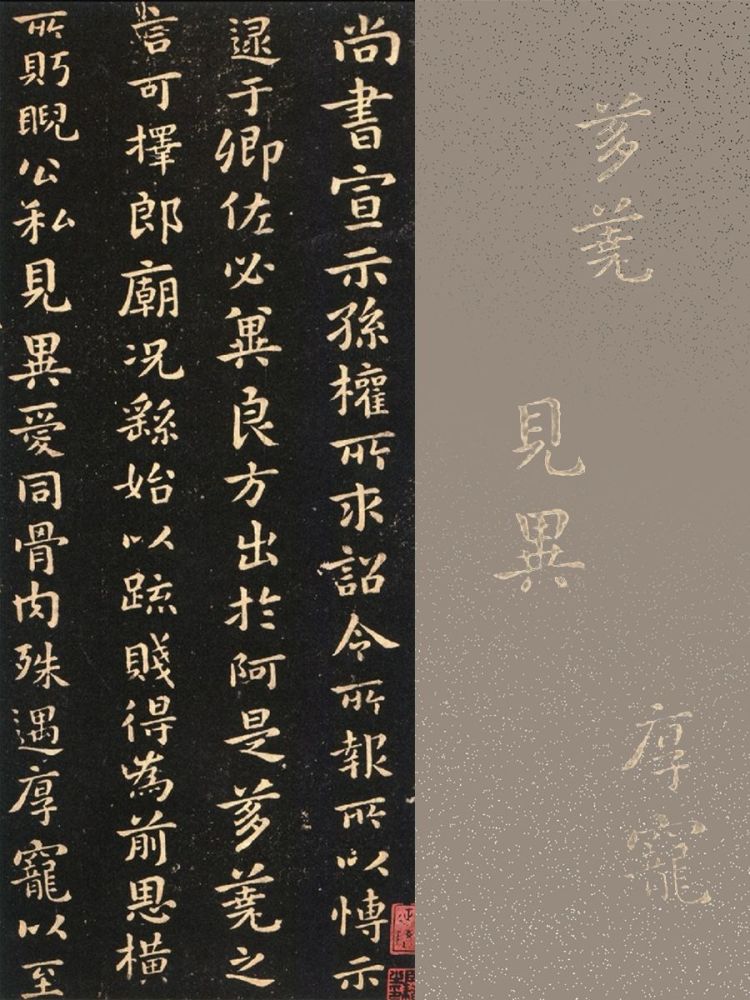 尚書宣示孫權所求詔令所報所以愽示
逮于卿佐必冀良方出於阿是芻蕘之
言可擇郎廟况繇始以疏賤得為前恩橫
所眄睨公私見異愛同骨肉殊遇厚寵以至
芻蕘
見異
厚寵